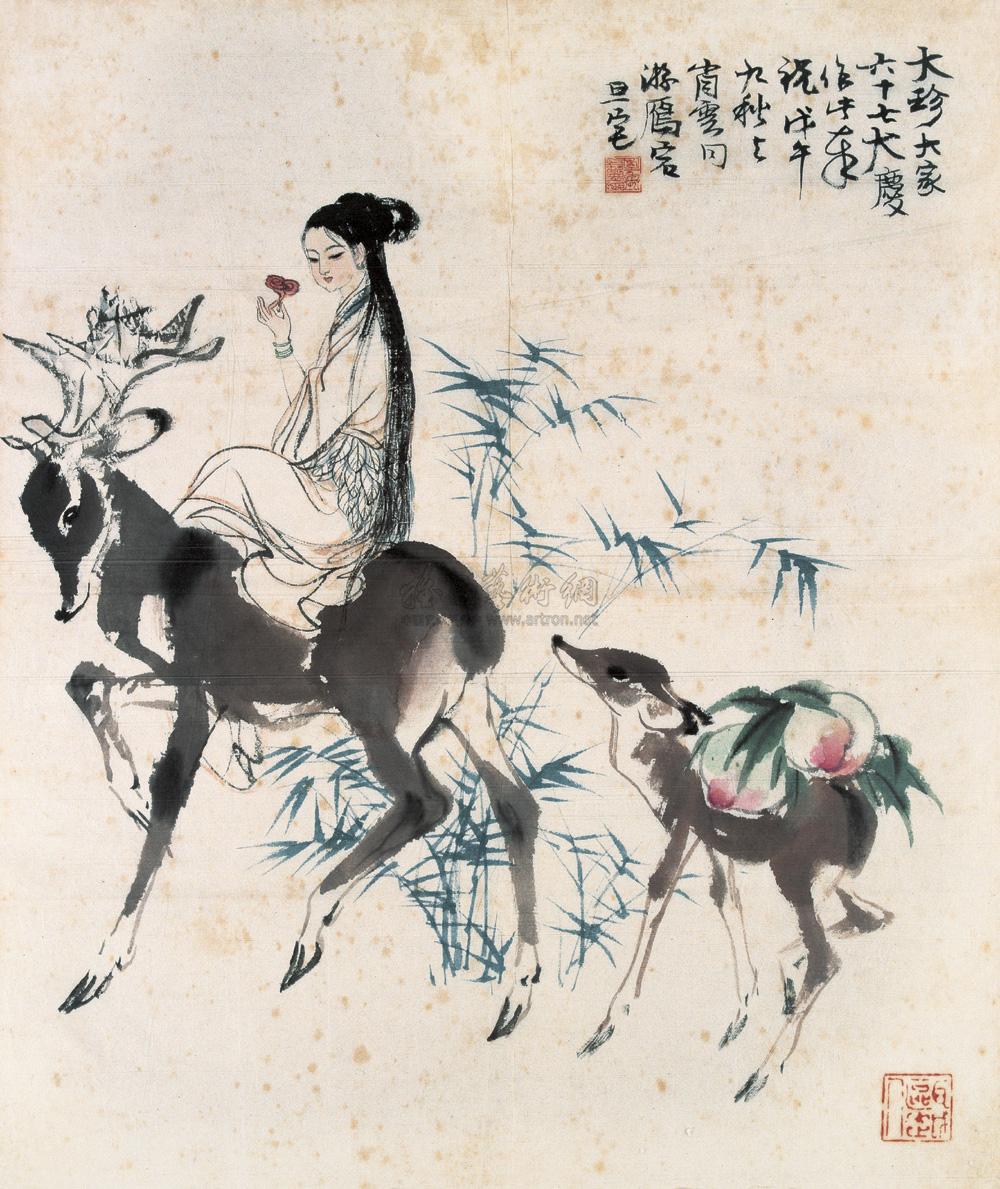 大珍大家
六十七大慶
作此奉
祝戊午
九秋之
肖雲同
游鴈宕
旦宅
藝術網
www.artron.net